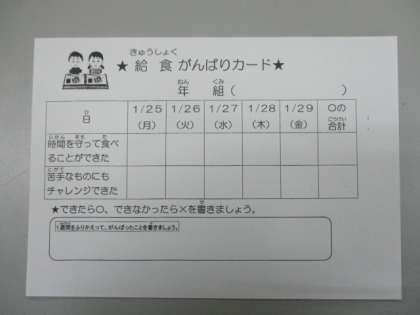 きゅうしょく
★ 給 食 がんばりカード★
ねん くみ
年 組 ( )
ひ
日 1/25 1/26 1/27 1/28 1/29 ○の
(月) (火) (水) (木) (金) 合計
じかん まも た
時間を守って食べ
ることができた
にがて
苦手なものにも
チャレンジできた
★できたら○、できなかったら×を書きましょう。
1週間をふりかえって、がんばったことを書きましょう。